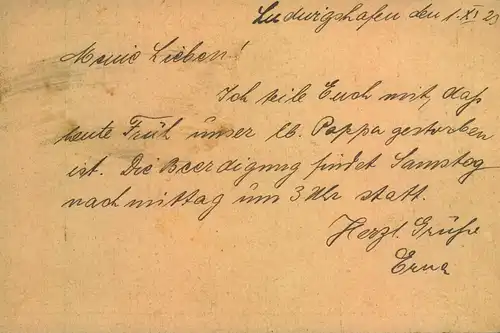 Ludwigshafen den 1. XI 23
Meine Lieben!
Ich teile Euch mit, daß
heute Früh unser lb. Pappa gestorben
ist. Die Beerdigung findet Samstag
nachmittag um 3 Uhr statt.
Herzl. Grüße
Erna